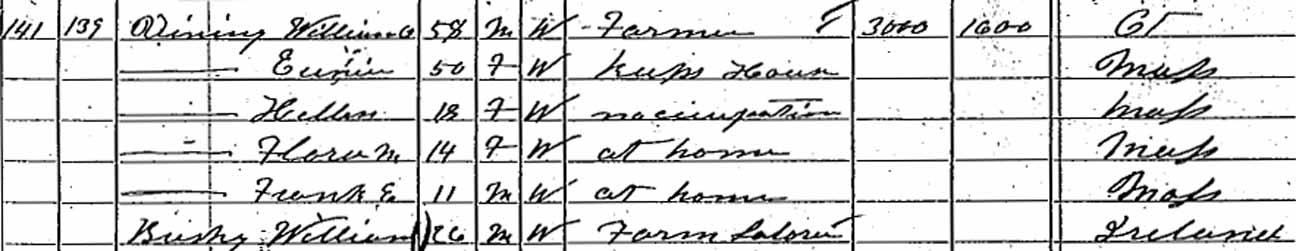 141 139 Vining William 58 M W Farmer 3000 1600 CT
50 F W Keeps House Mass
Hellen 18 F W no occupation Mass
Flora M 14 F W at home Mass
Frank E 11 M W at home Mass
William 26 M W Farm Laborer Ireland